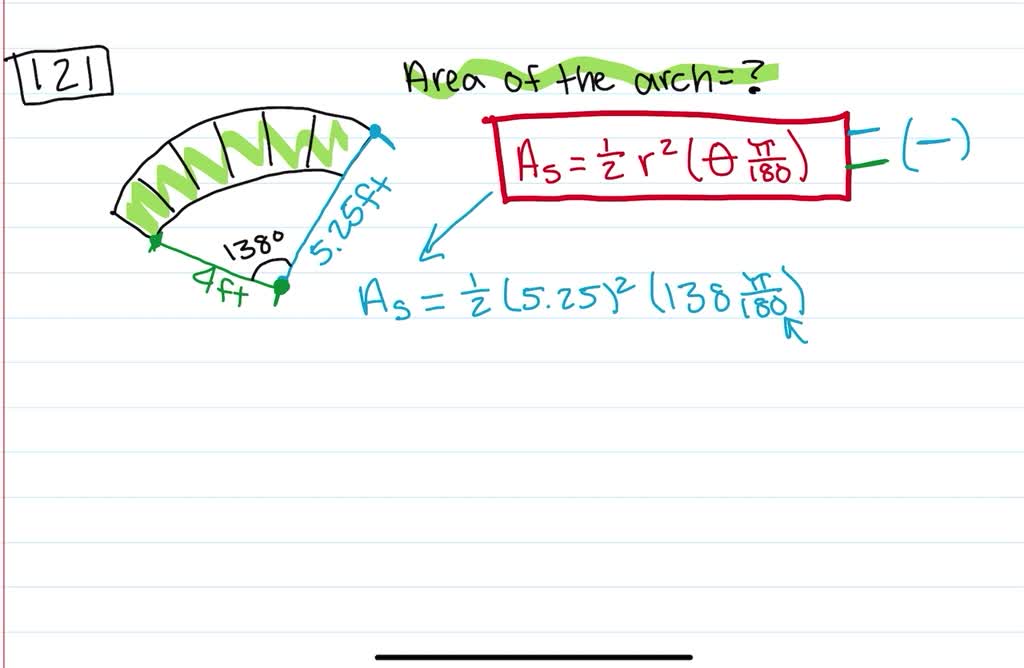 121
Area of the arch=?
A_S = 1/2 r² (θ π/180)
(−)
138°
5.25ft
4ft
A_S = 1/2 (5.25)² (138 π/180)